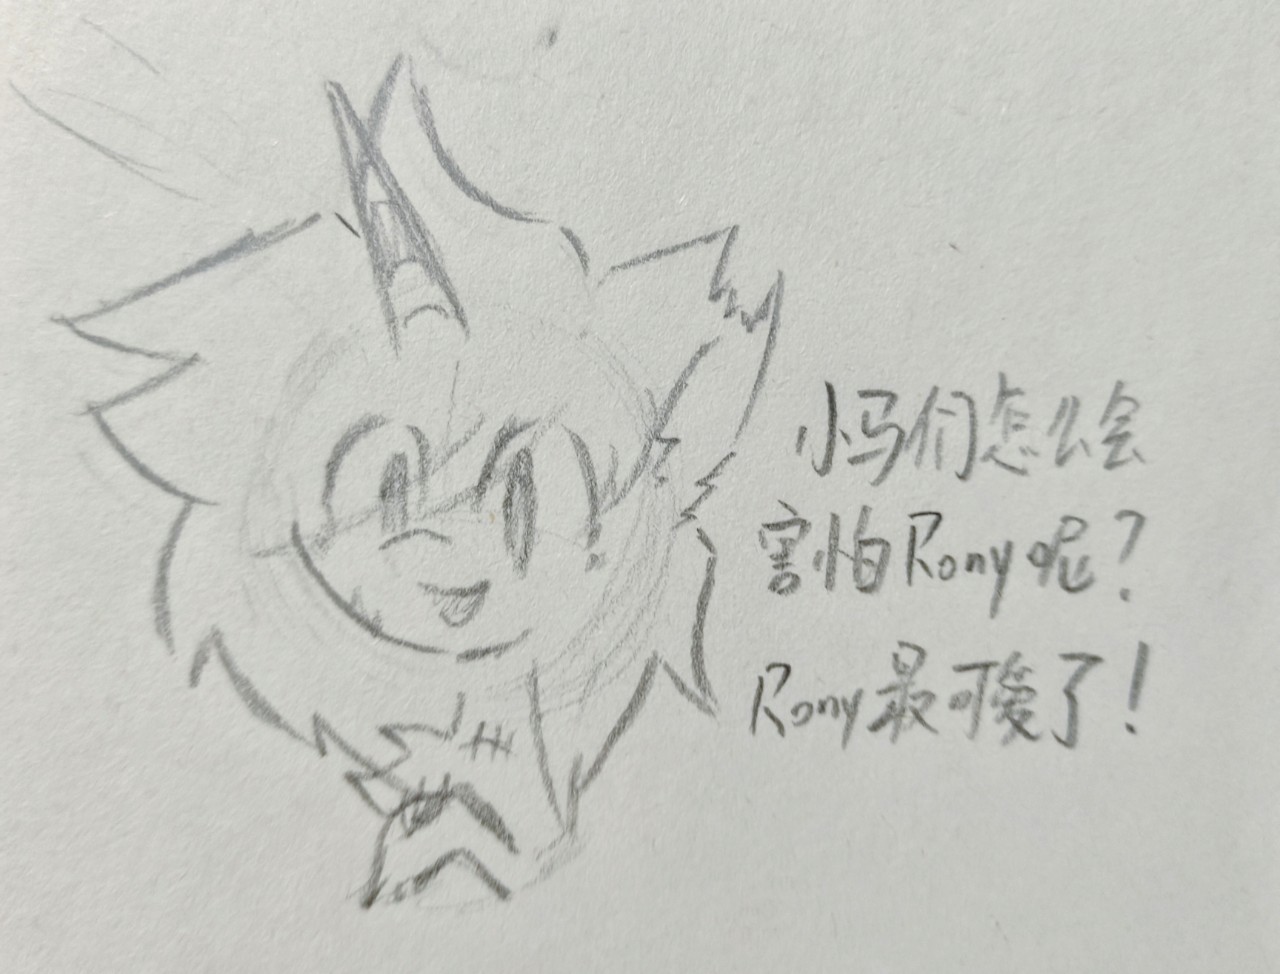 小马们怎么会
害怕Rony呢？
Rony最可爱了！